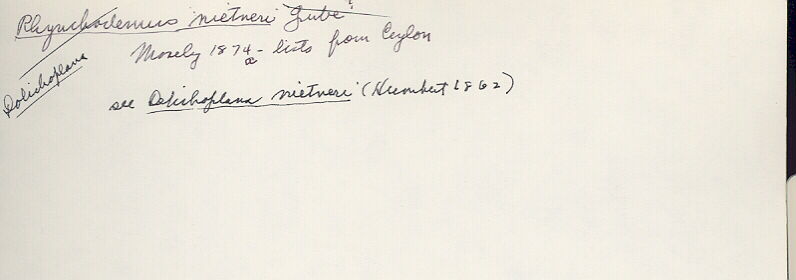 Rhynchodemus nietneri Grube?
Dolichoplana
Mosely 1874a - lists from Ceylon
see Dolichoplana nietneri (Humbert 1862)